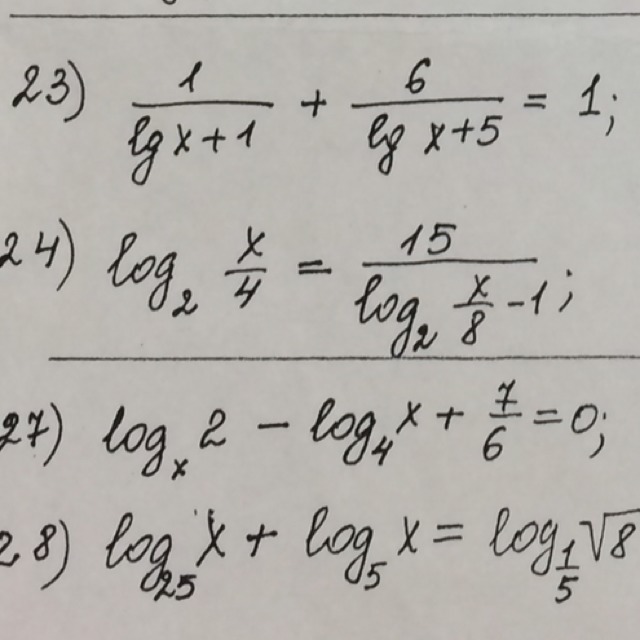 23) 1/(lg x+1) + 6/(lg x+5) = 1;
24) log₂ x/4 = 15/(log₂ x/8 -1);
27) logₓ 2 - log₄ x + 7/6 = 0;
28) log₂₅ x + log₅ x = log_(1/5) √8